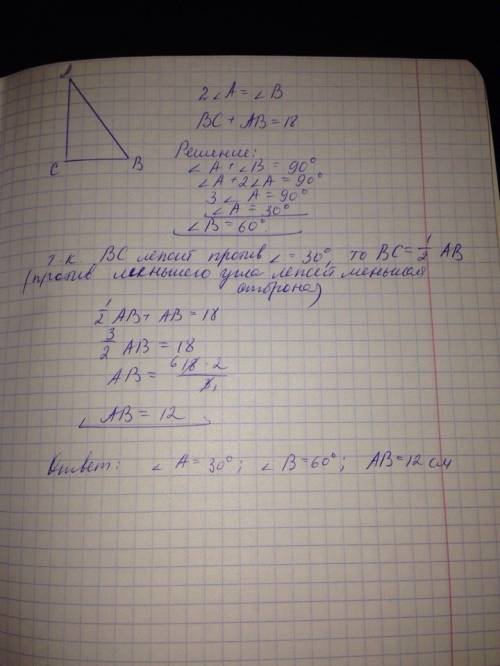 A
C
B
2∠A = ∠B
BC + AB = 18
Решение:
∠A + ∠B = 90°
∠A + 2∠A = 90°
3∠A = 90°
∠A = 30°
∠B = 60°.
т.к BC лежит против ∠ = 30°, то BC = 1/2 AB
(против меньшего угла лежит меньшая
сторона)
1/2 AB + AB = 18
3/2 AB = 18
AB = 6 18 · 2 / 3 1
AB = 12
Ответ: ∠A = 30°; ∠B = 60°; AB = 12 см